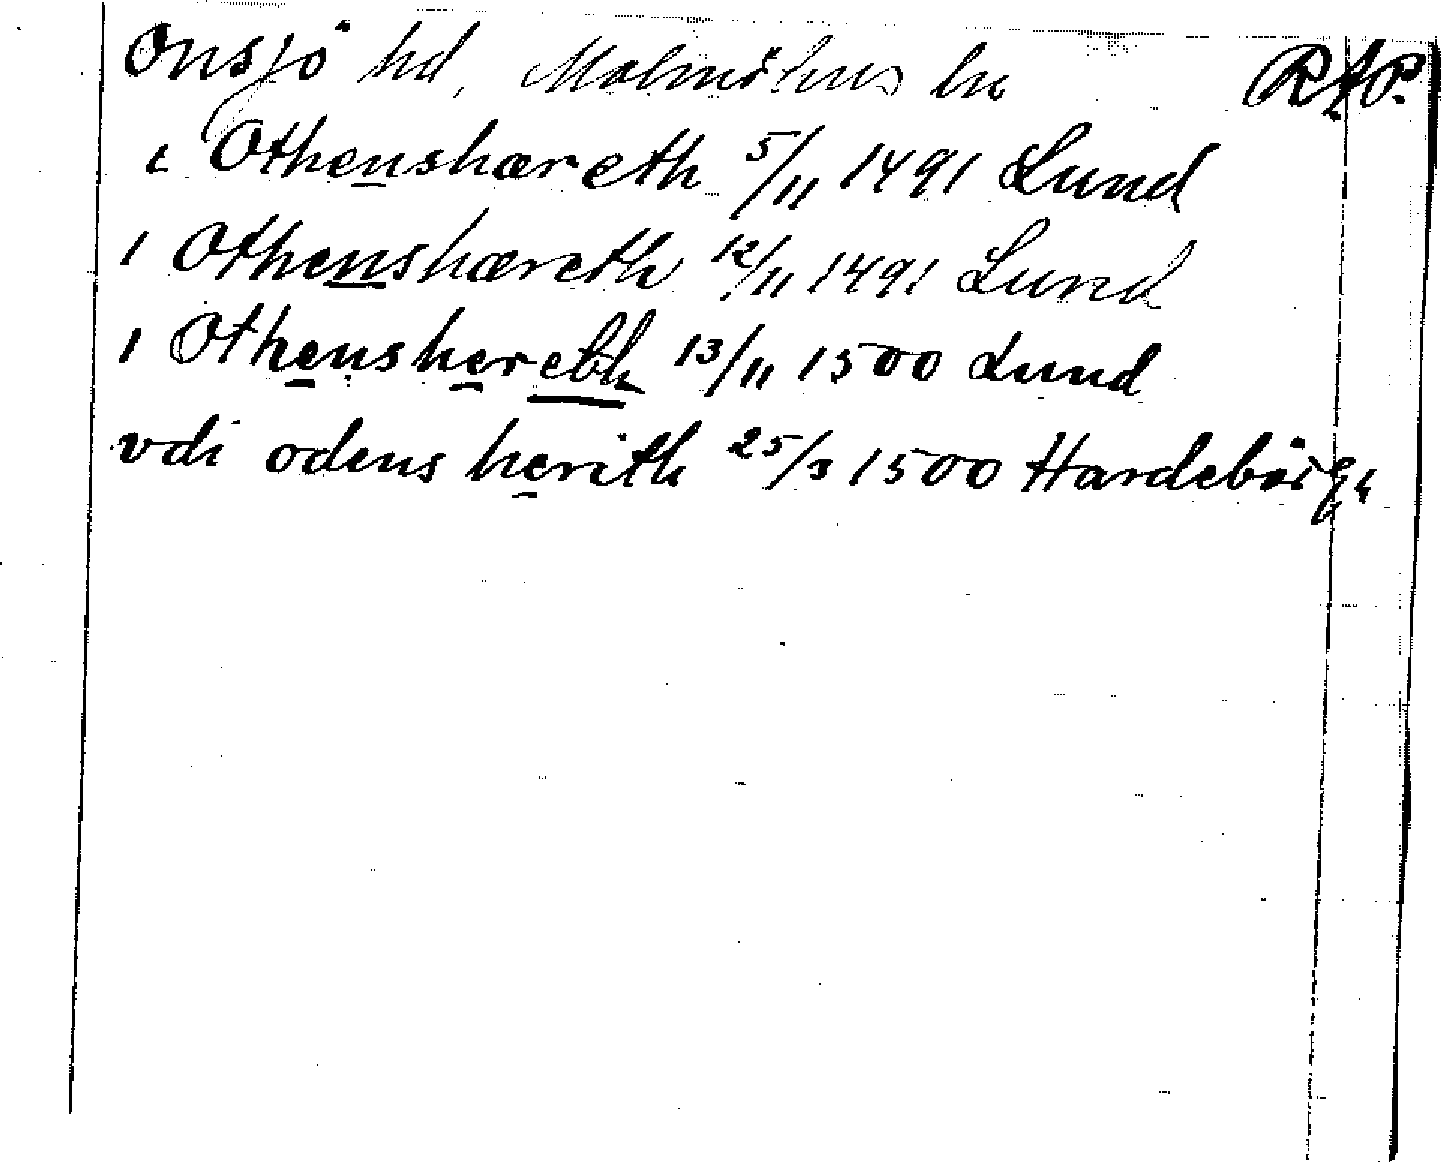 Onsjö hd, Malmöhus ln RAP.
i Othenshæreth 5/11 1491 Lund
i Othenshæreth 12/11 1491 Lund
i Othensherebh 13/11 1500 Lund
vdi odens herith 25/3 1500